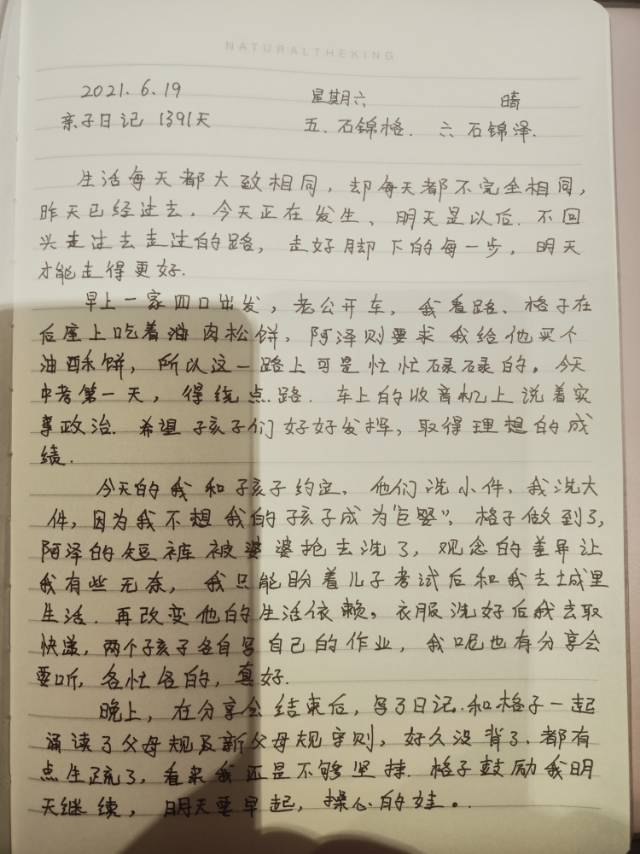 NATURALTHEKING
2021.6.19 星期六 晴
亲子日记 1391天 五.石锦格. 六石锦泽.
生活每天都大致相同,却每天都不完全相同,
昨天已经过去.今天正在发生、明天是以后.不回
头走过去走过的路,走好脚下的每一步,明天
才能走得更好.
早上一家四口出发,老公开车,我看路.格子在
后座上吃着油肉松饼,阿泽则要求我给他买个
油酥饼,所以这一路上可是忙忙碌碌的。今天
中考第一天,得绕点路.车上的收音机上说着实
事政治.希望孩子们好好发挥,取得理想的成
绩.
今天的我和孩子约定.他们洗小件,我洗大
件,因为我不想我的孩子成为"巨婴",格子做到了,
阿泽的短裤被婆婆抢去洗了,观念的差异让
我有些无奈,我只能盼着儿子考试后和我去城里
生活.再改变他的生活依赖。衣服洗好后我去取
快递,两个孩子各自写自己的作业,我呢也有分享会
要听,各忙各的,真好.
晚上,在分享会结束后,写了日记.和格子一起
诵读了父母规及新父母规守则,好久没背了.都有
点生疏了,看来我还是不够坚持.格子鼓励我明
天继续,明天要早起,操心的娃。